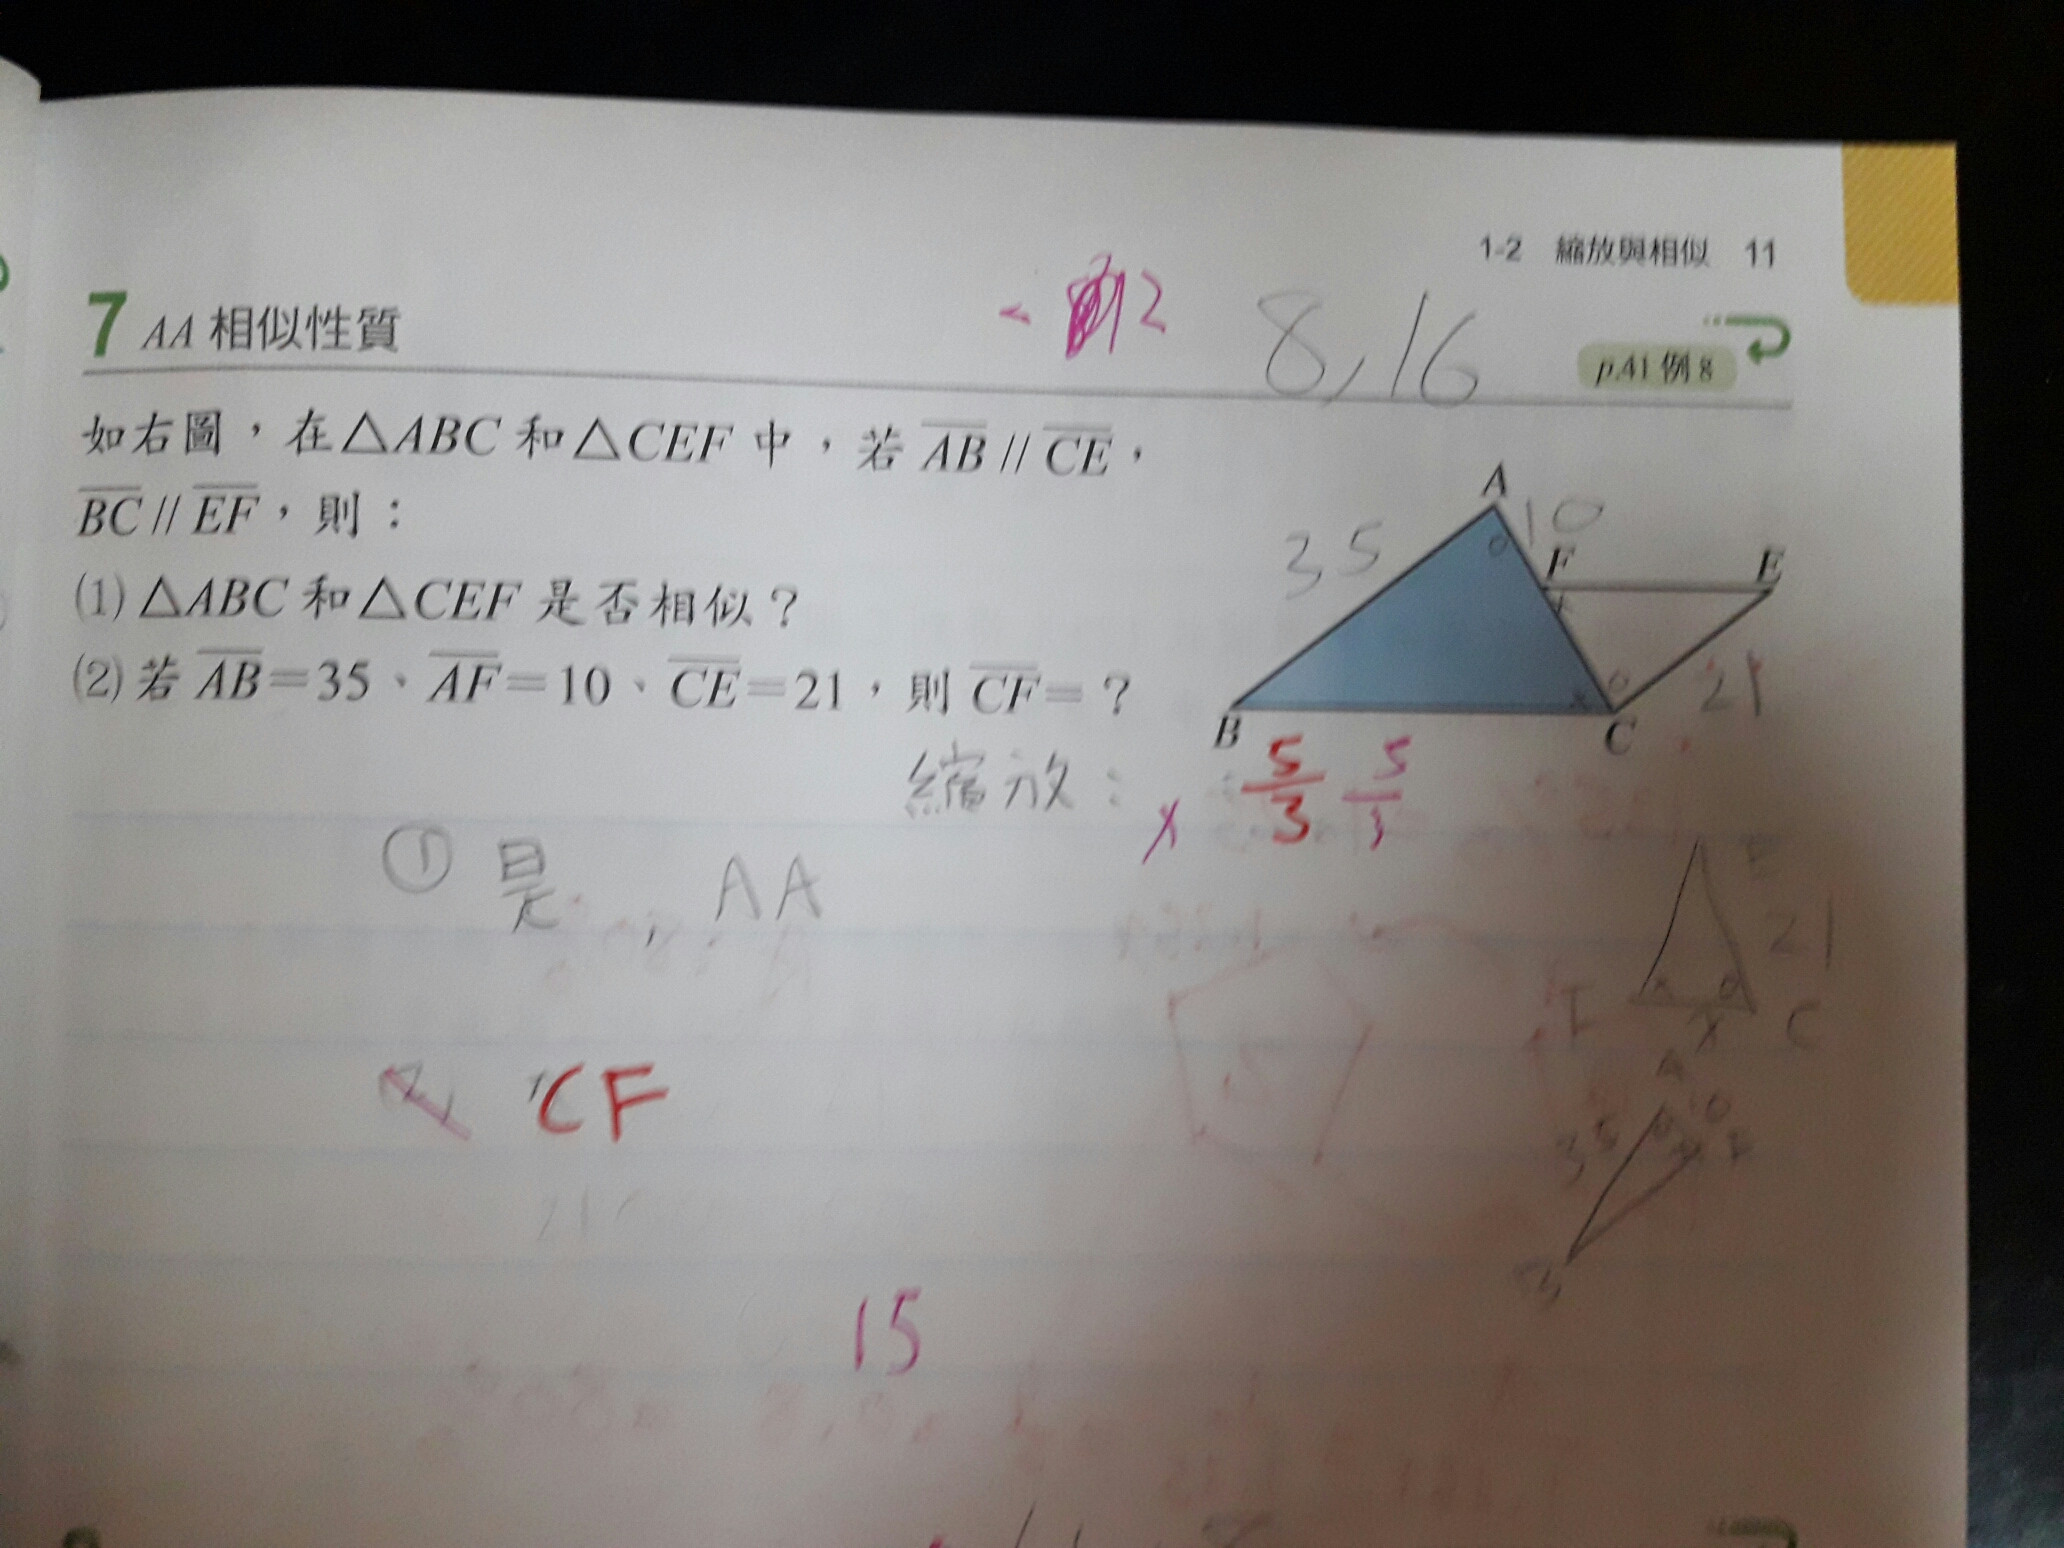 1-2 縮放與相似 11
7 AA 相似性質
8,16
p.41 例 8
如右圖，在△ABC 和△CEF 中，若 AB // CE，
BC // EF，則：
(1) △ABC 和△CEF 是否相似？
(2) 若 AB=35、AF=10、CE=21，則 CF=？
A
10
35
F
E
21
B
C
縮放：
x 5/3
① 是, AA
CF
15
E
21
F
x
C
A
10
35
F
B